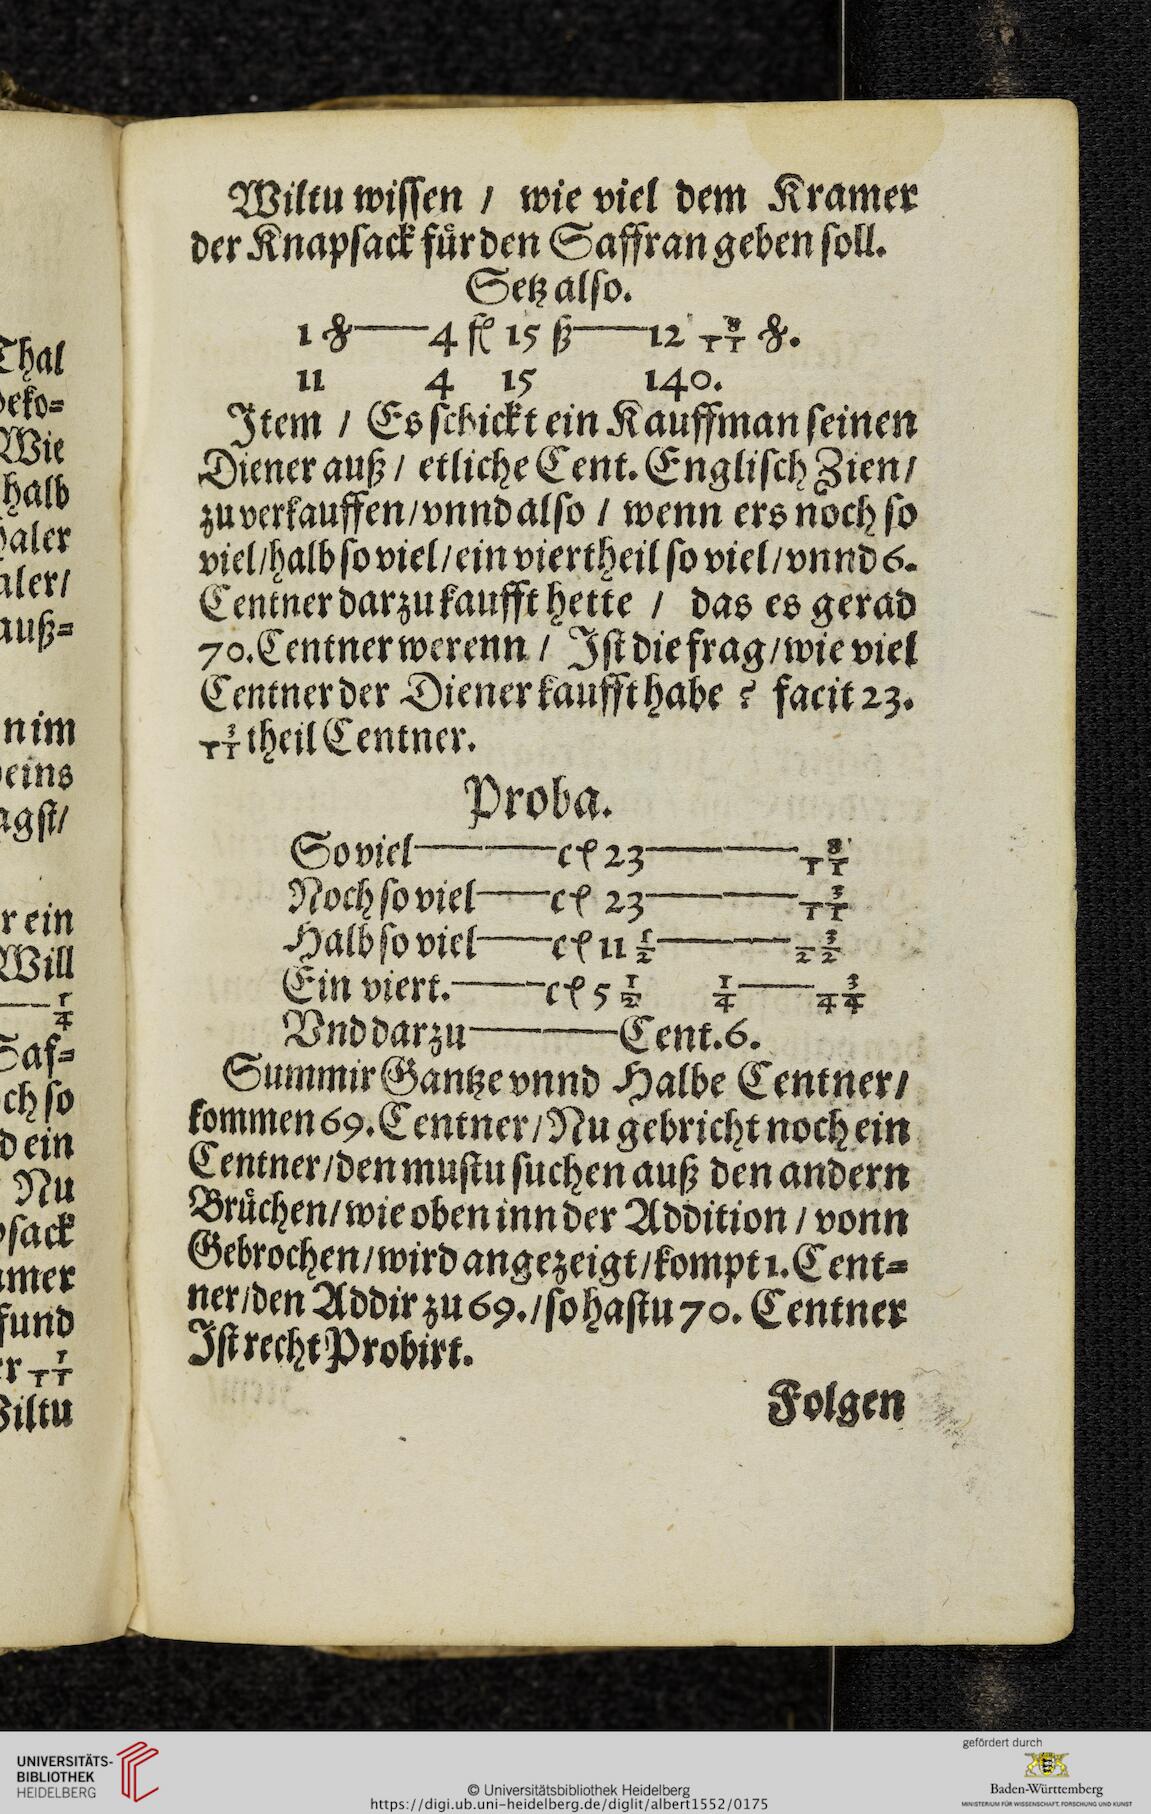 Thal
deko=
Wie
halb
haler
aler/
auß=
n im
eins
agst/
r ein
Will
1/4
Saf=
ch so
d ein
Nu
psack
amer
fund
er 1/11
Wiltu
Wiltu wissen / wie viel dem Kramer
der Knapsack fuͤr den Saffran geben soll.
Setz also.
1 ₰ —— 4 fl 15 ß —— 12 8/11 ₰.
11 4 15 140.
Item / Es schickt ein Kauffman seinen
Diener auß / etliche Cent. Englisch Zien /
zu verkauffen / vnnd also / wenn ers noch so
viel / halb so viel / ein viertheil so viel / vnnd 6.
Centner darzu kaufft hette / das es gerad
70. Centner werenn / Ist die frag / wie viel
Centner der Diener kaufft habe ? facit 23.
3/11 theil Centner.
Proba.
So viel —— cł 23 —— 8/11
Noch so viel —— cł 23 —— 3/11
Halb so viel —— cł 11 1/2 —— 3/22
Ein viert. —— cł 5 1/2 1/4 —— 3/44
Vnd darzu —— Cent. 6.
Summir Gantze vnnd Halbe Centner /
kommen 69. Centner / Nu gebricht noch ein
Centner / den mustu suchen auß den andern
Bruͤchen / wie oben inn der Addition / vonn
Gebrochen / wird angezeigt / kompt 1. Cent=
ner / den Addir zu 69. / so hastu 70. Centner
Ist recht Probirt.
Folgen
UNIVERSITÄTS-
BIBLIOTHEK
HEIDELBERG
© Universitätsbibliothek Heidelberg
https://digi.ub.uni-heidelberg.de/diglit/albert1552/0175
gefördert durch
Baden-Württemberg
MINISTERIUM FÜR WISSENSCHAFT, FORSCHUNG UND KUNST